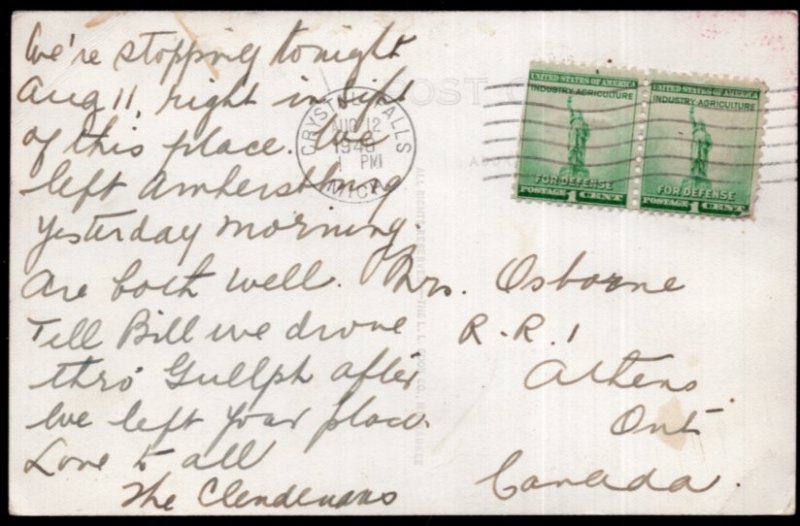 We're stopping tonight
Aug 11, right in sight
of this place. We
left Amherstbug
yesterday morning.
Are both well.
Tell Bill we drove
thro' Gullph after
We left your place.
Love to all
The Clendenans
POST C
CRYSTAL FALLS
AUG 12
1 PM
MICH.
UNITED STATES OF AMERICA
INDUSTRY AGRICULTURE
FOR DEFENSE
POSTAGE 1 CENT
UNITED STATES OF AMERICA
INDUSTRY AGRICULTURE
FOR DEFENSE
POSTAGE 1 CENT
Mrs. Osborne
R.R. 1
Athens
Ont
Canada.